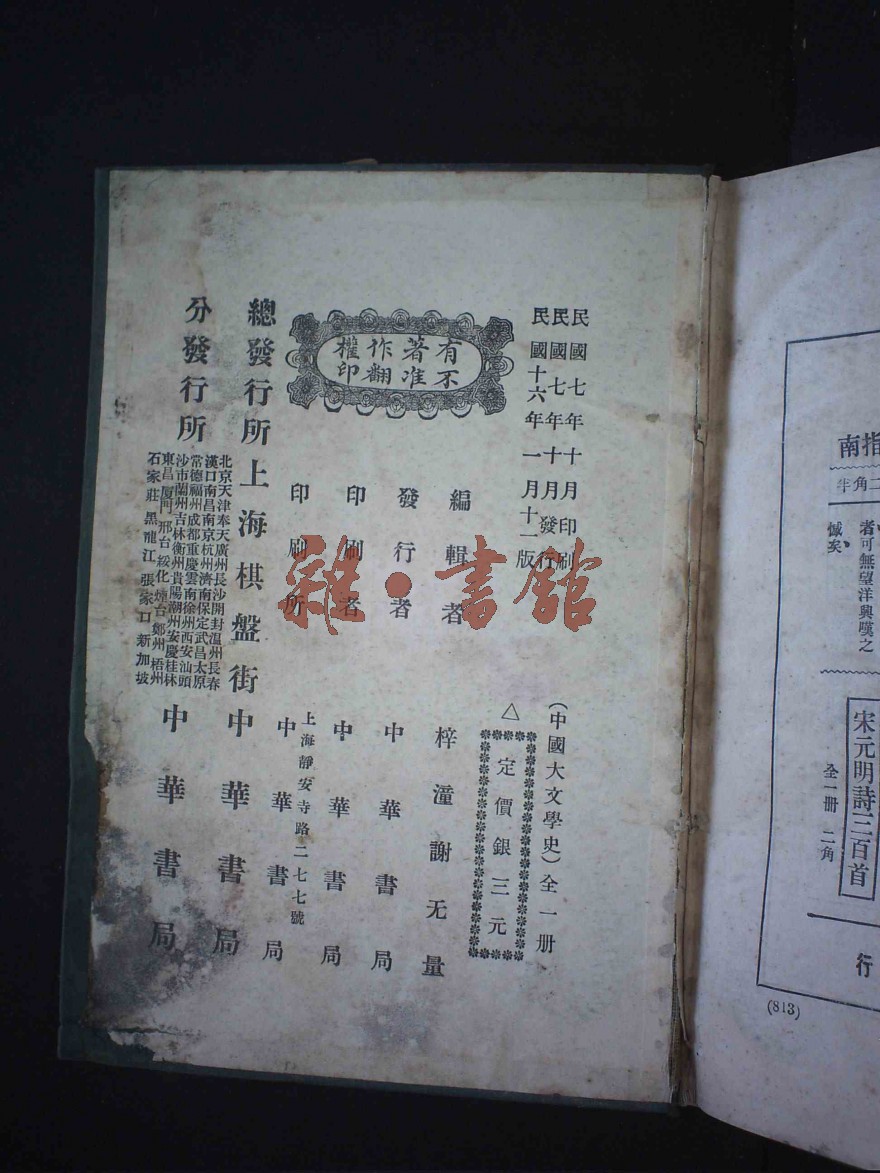 民國七年十月印刷
民國七年十月發行
民國十六年一月十一版
(中國大文學史)全一册
△定價銀三元
有著作權
不准翻印
編輯者 梓潼謝无量
發行者 中華書局
印刷者 中華書局
印刷所 上海靜安寺路二七七號 中華書局
總發行所 上海棋盤街 中華書局
分發行所
北京天津奉天廣州長沙開封温州長春
漢口南昌南京杭州濟南保定武昌太原
常德福州成都重慶雲南徐州西安汕頭
沙市蘭州吉林衡州貴陽潮州安慶桂林
東昌厦門邢台綏化煙台鄭州梧州
石家莊黑龍江張家口新加坡
中華書局
雜·書館
指南
二角半
者可無望洋興嘆之
憾矣
宋元明詩三百首
全一册 二角
行
(813)